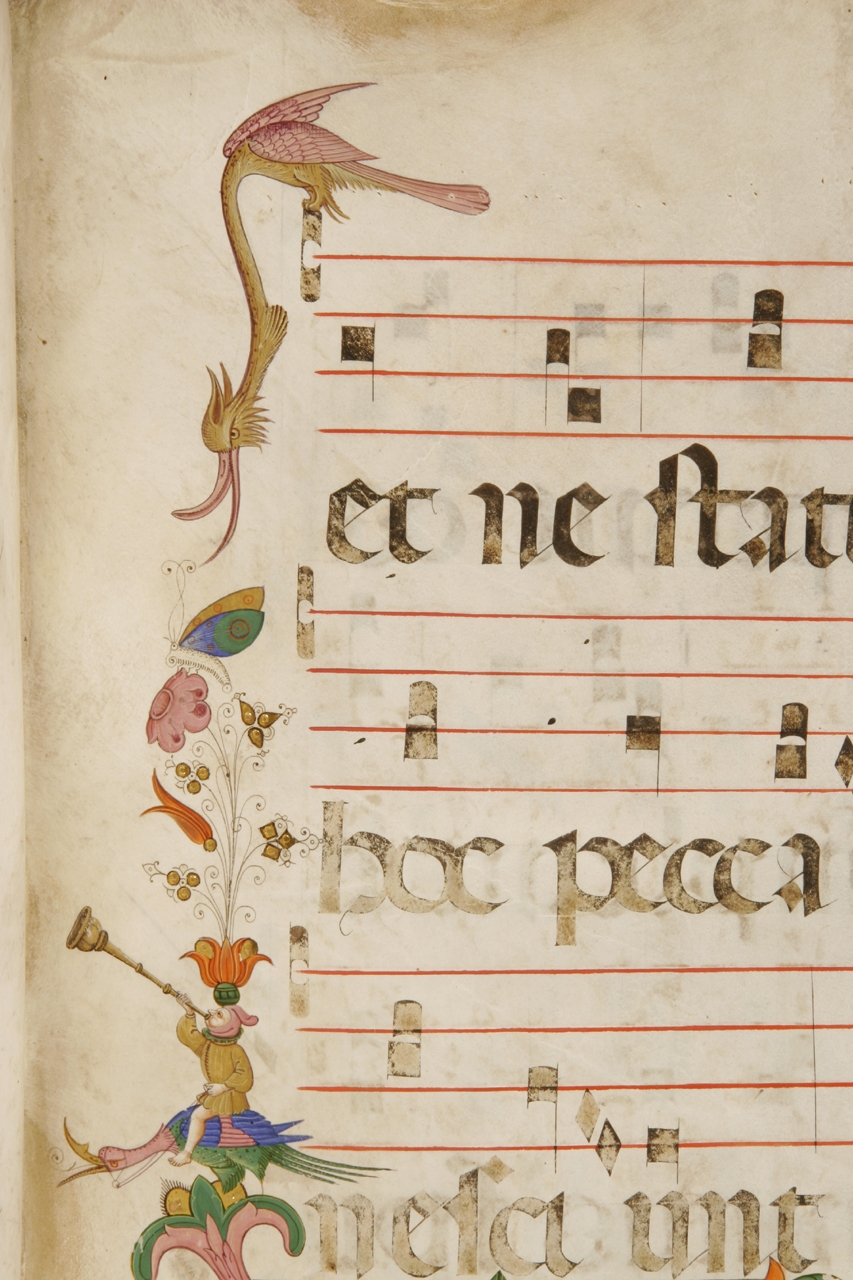 et ne ſtatu
hoc pecca
neſci unt